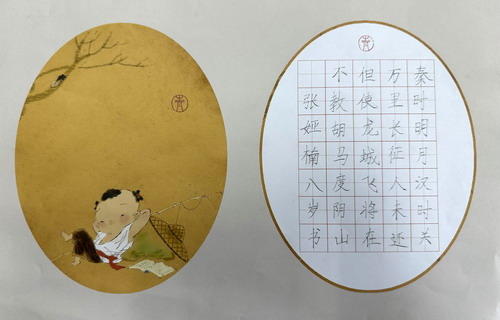 秦时明月汉时关
万里长征人未还
但使龙城飞将在
不教胡马度阴山
张娅楠八岁书